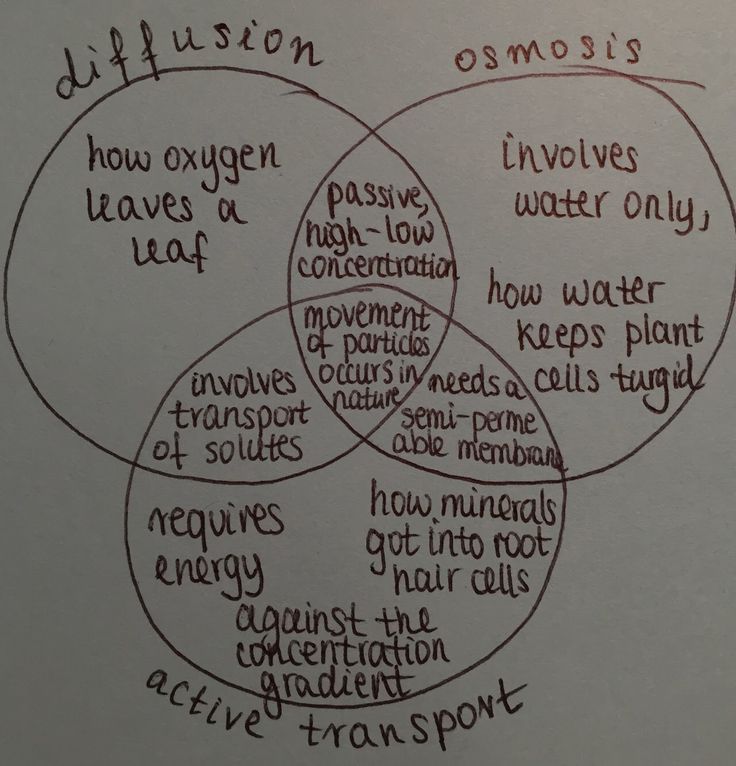 diffusion
osmosis
how oxygen
leaves a
leaf
passive,
high-low
concentration
involves
water only,
how water
keeps plant
cells turgid
movement
of particles
occurs in
nature
involves
transport
of solutes
needs a
semi-perme
able membrane
requires
energy
how minerals
got into root
hair cells
against the
concentration
gradient
active transport